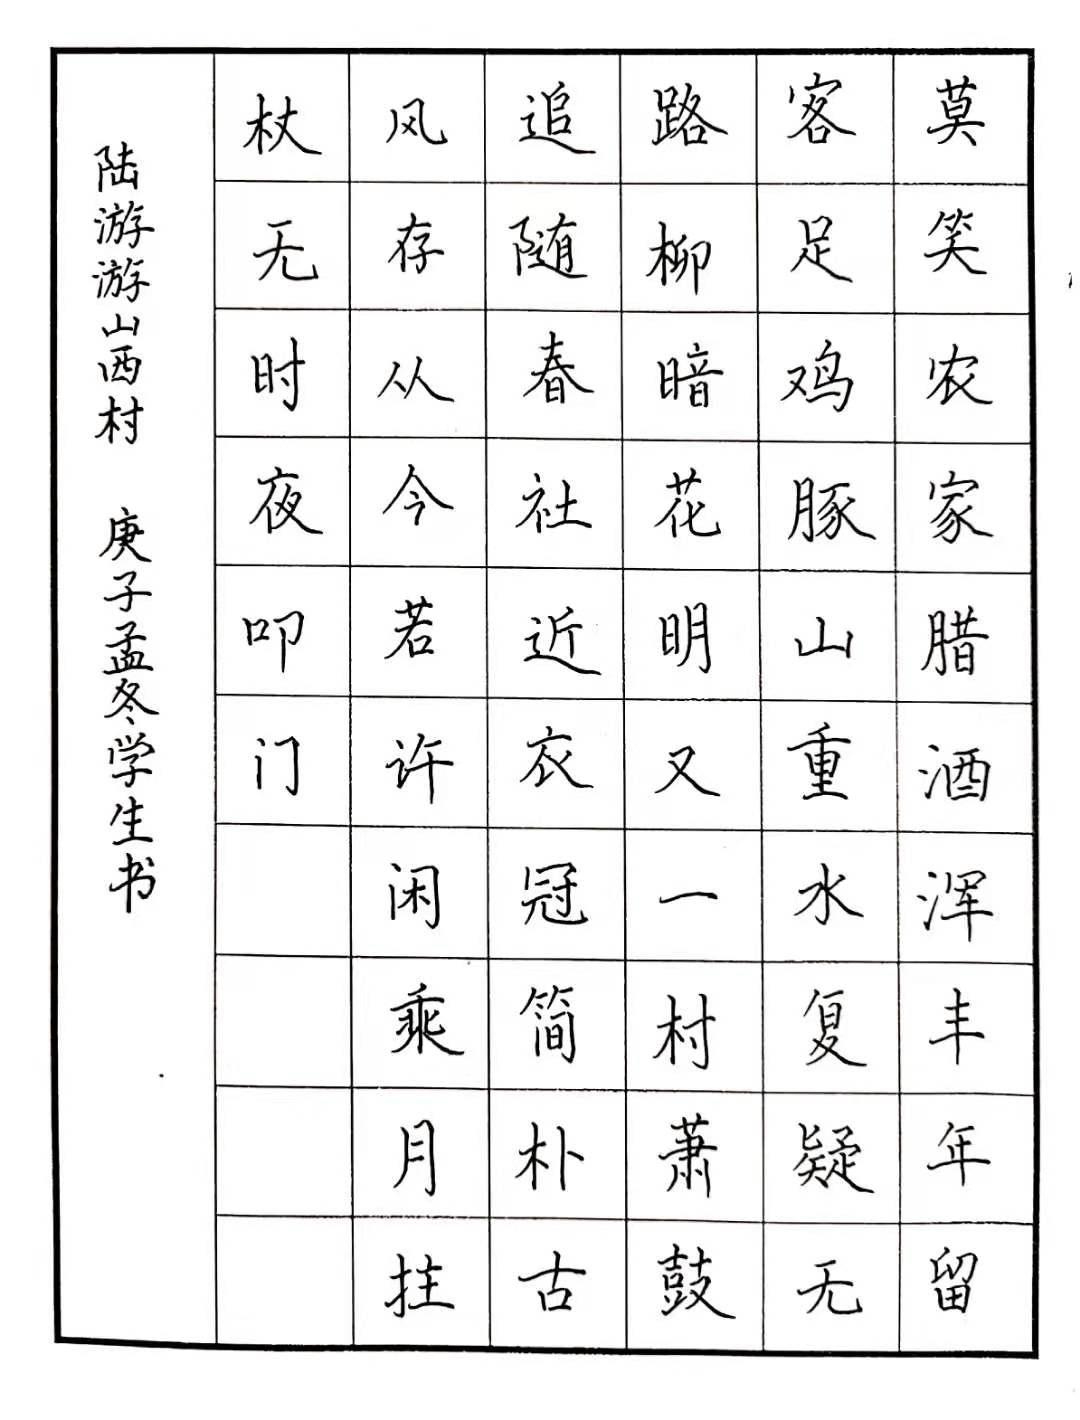 莫笑农家腊酒浑丰年留
客足鸡豚山重水复疑无
路柳暗花明又一村萧鼓
追随春社近衣冠简朴古
风存从今若许闲乘月拄
杖无时夜叩门
陆游游山西村 庚子孟冬学生书